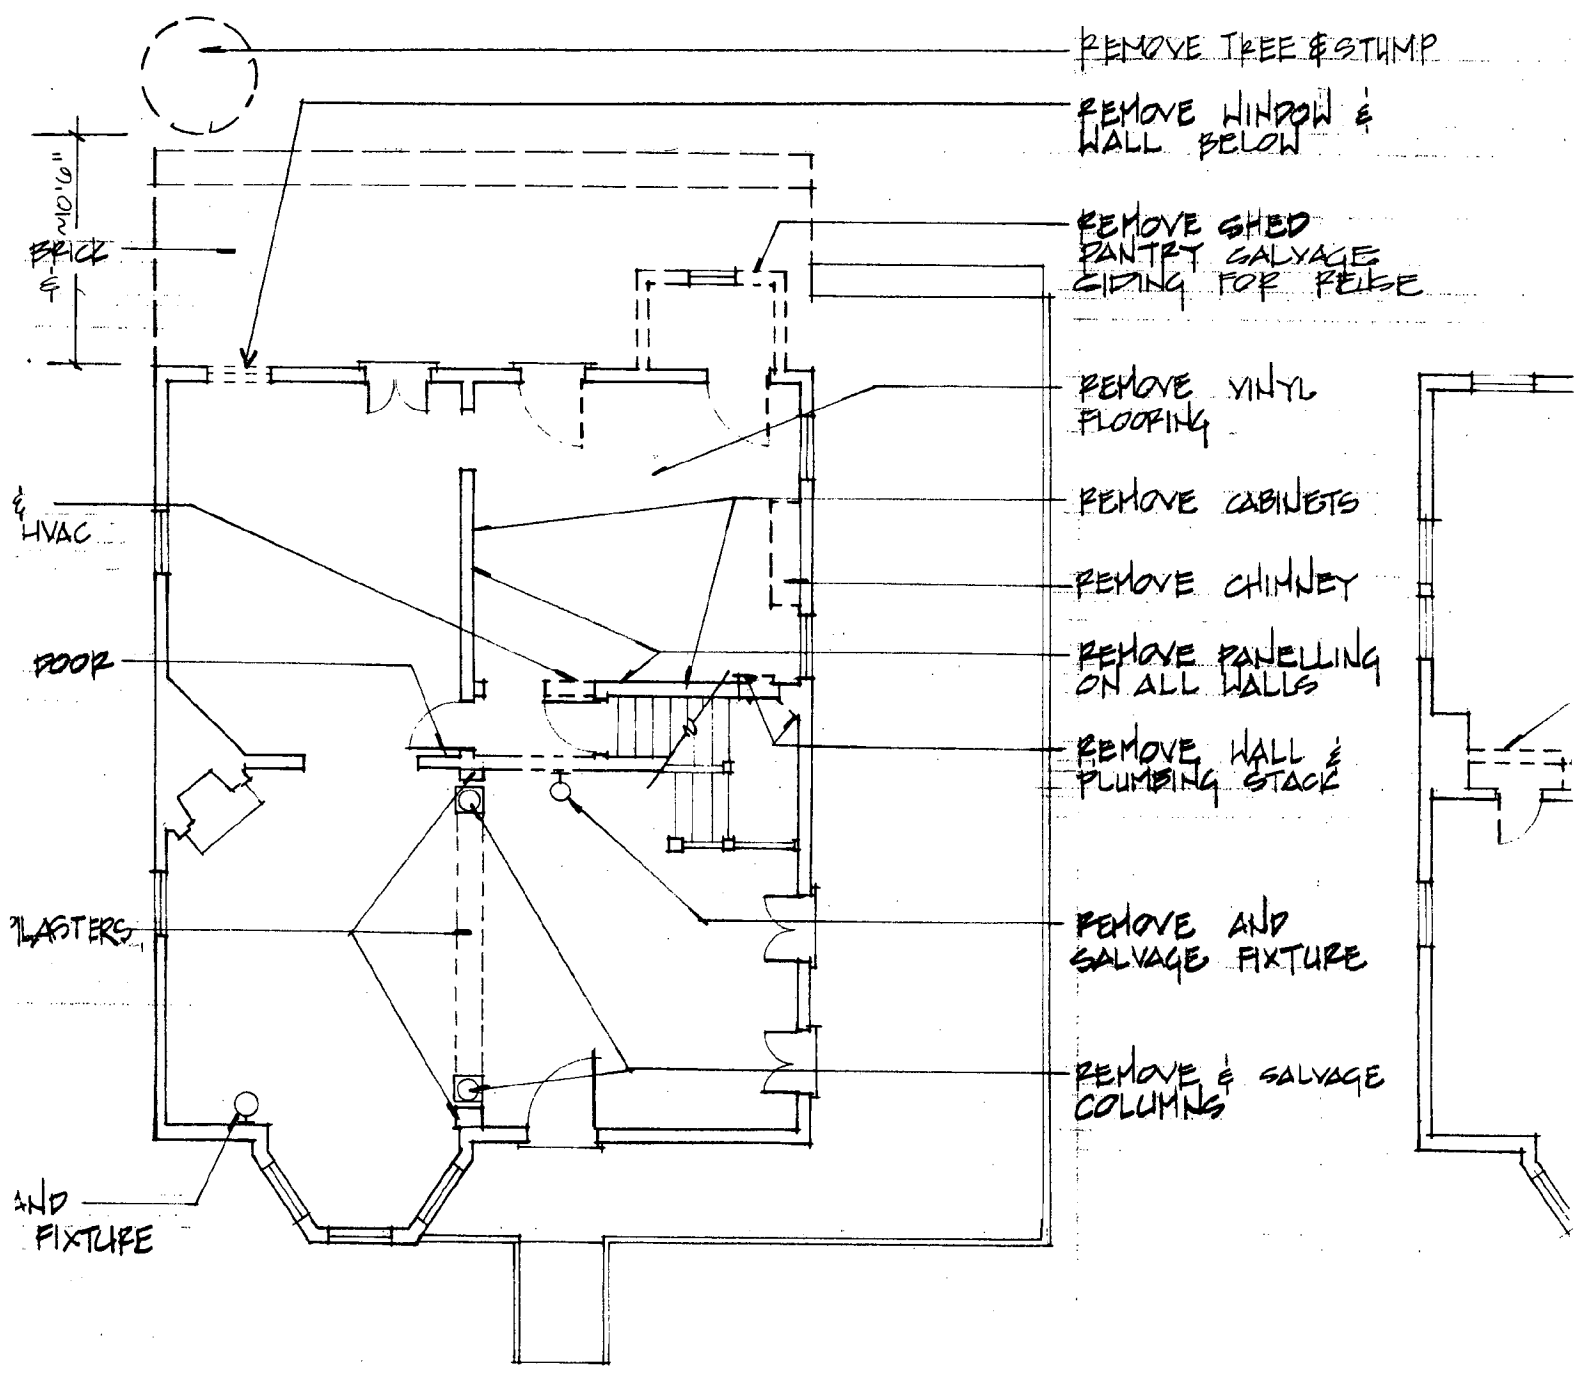 REMOVE TREE & STUMP
REMOVE WINDOW &
WALL BELOW
~10'6"
&
BRICK
REMOVE SHED
PANTRY SALVAGE
SIDING FOR REUSE
REMOVE VINYL
FLOORING
&
HVAC
REMOVE CABINETS
REMOVE CHIMNEY
DOOR
REMOVE PANELLING
ON ALL WALLS
REMOVE WALL &
PLUMBING STACK
ILASTERS
REMOVE AND
SALVAGE FIXTURE
REMOVE & SALVAGE
COLUMNS
AND
FIXTURE